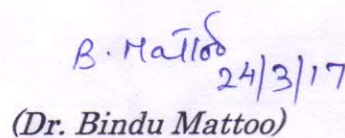 B. Mattoo
24/3/17
(Dr. Bindu Mattoo)